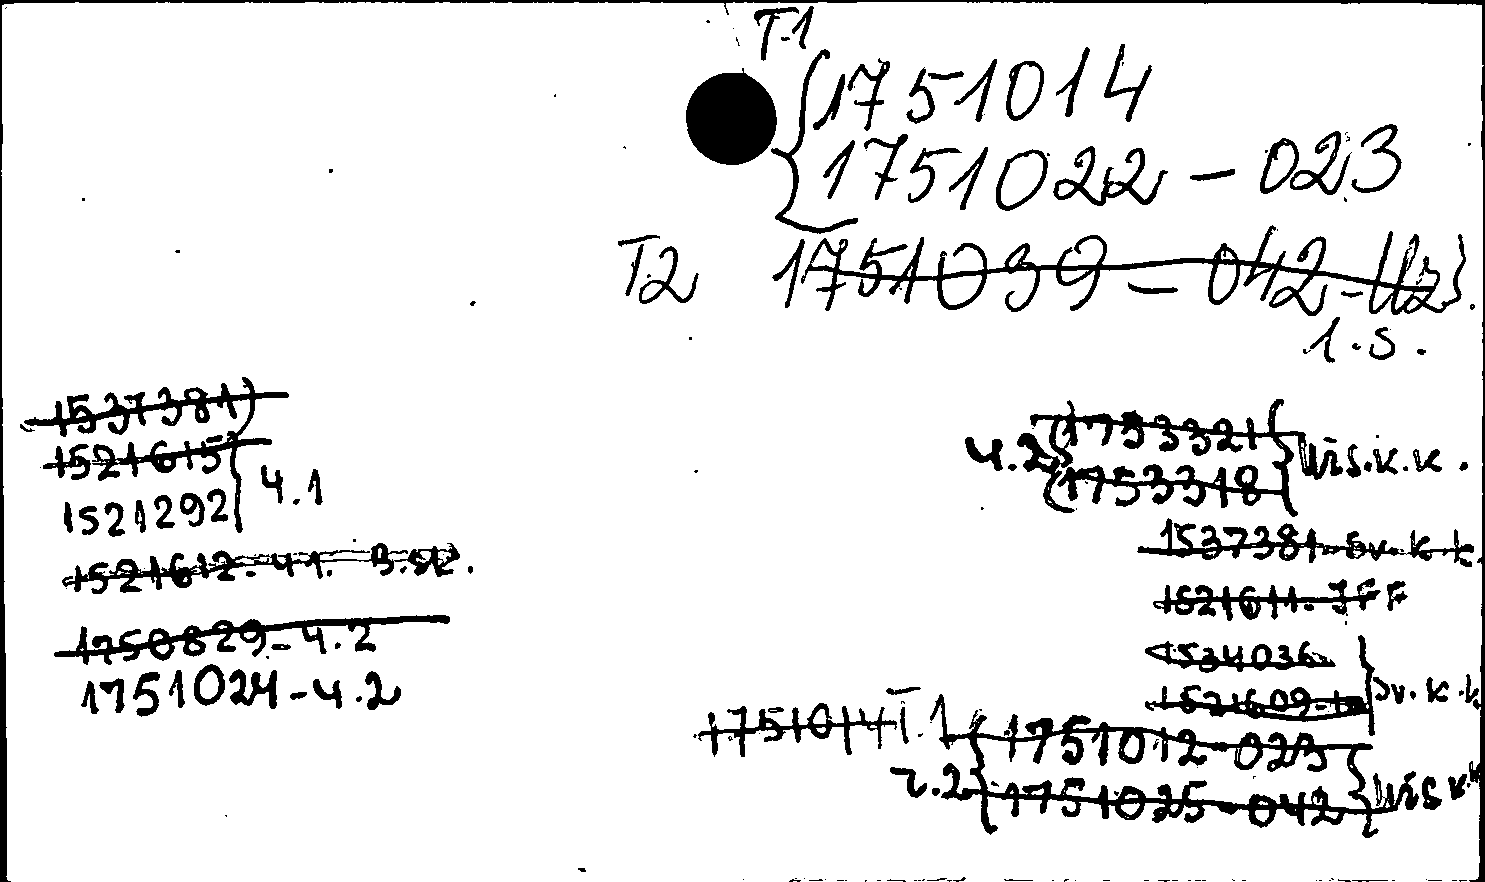 T.1
1751014
1751022 - 023
T2 1751039 - 042 -
1.s.
1537381
1521615
1521292 ч.1
1521612 - ч1.
1750829 - ч.2
1751024 - ч.2
ч.2 1753321
1753318 Vis.к.к.
1537381 - Sv.k.k.
1521611 - JFF
1534036
1521609 - Sv.k.k.
1751014 T.1 1751012 - 023
ч.2 1751025 - 042 Vis к.к